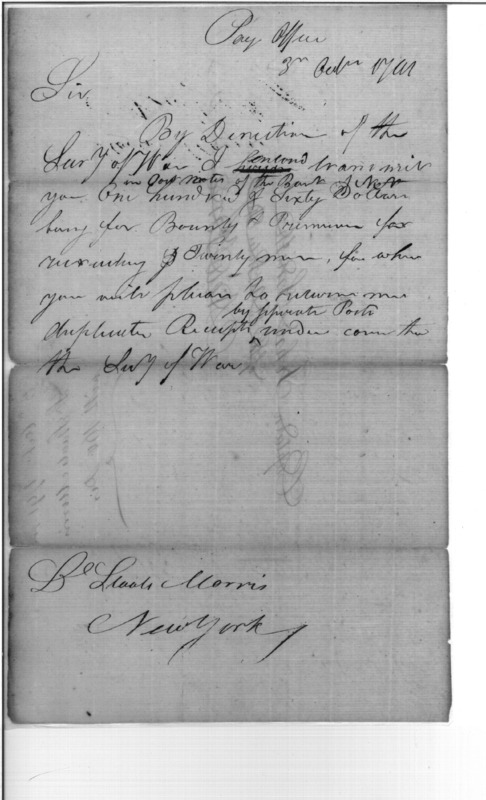 Pay Office
3rd 1791
Sir
By Direction of the
Secry of War I transmit
in post notes of the Bank of New
you One hundred & Sixty Dollars
being for Bounty & Premium for
recruiting Twenty men, for which
you will please to return me
by separate Posts
duplicate Receipts under cover to the
the Secy of War
Staats Morris
New York